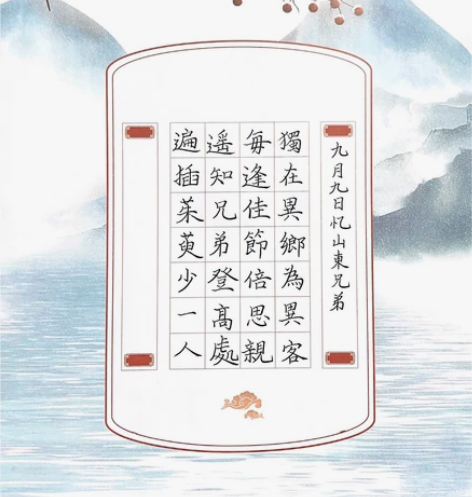 九月九日忆山東兄弟
獨在異鄉為異客
每逢佳節倍思親
遥知兄弟登高處
遍插茱萸少一人